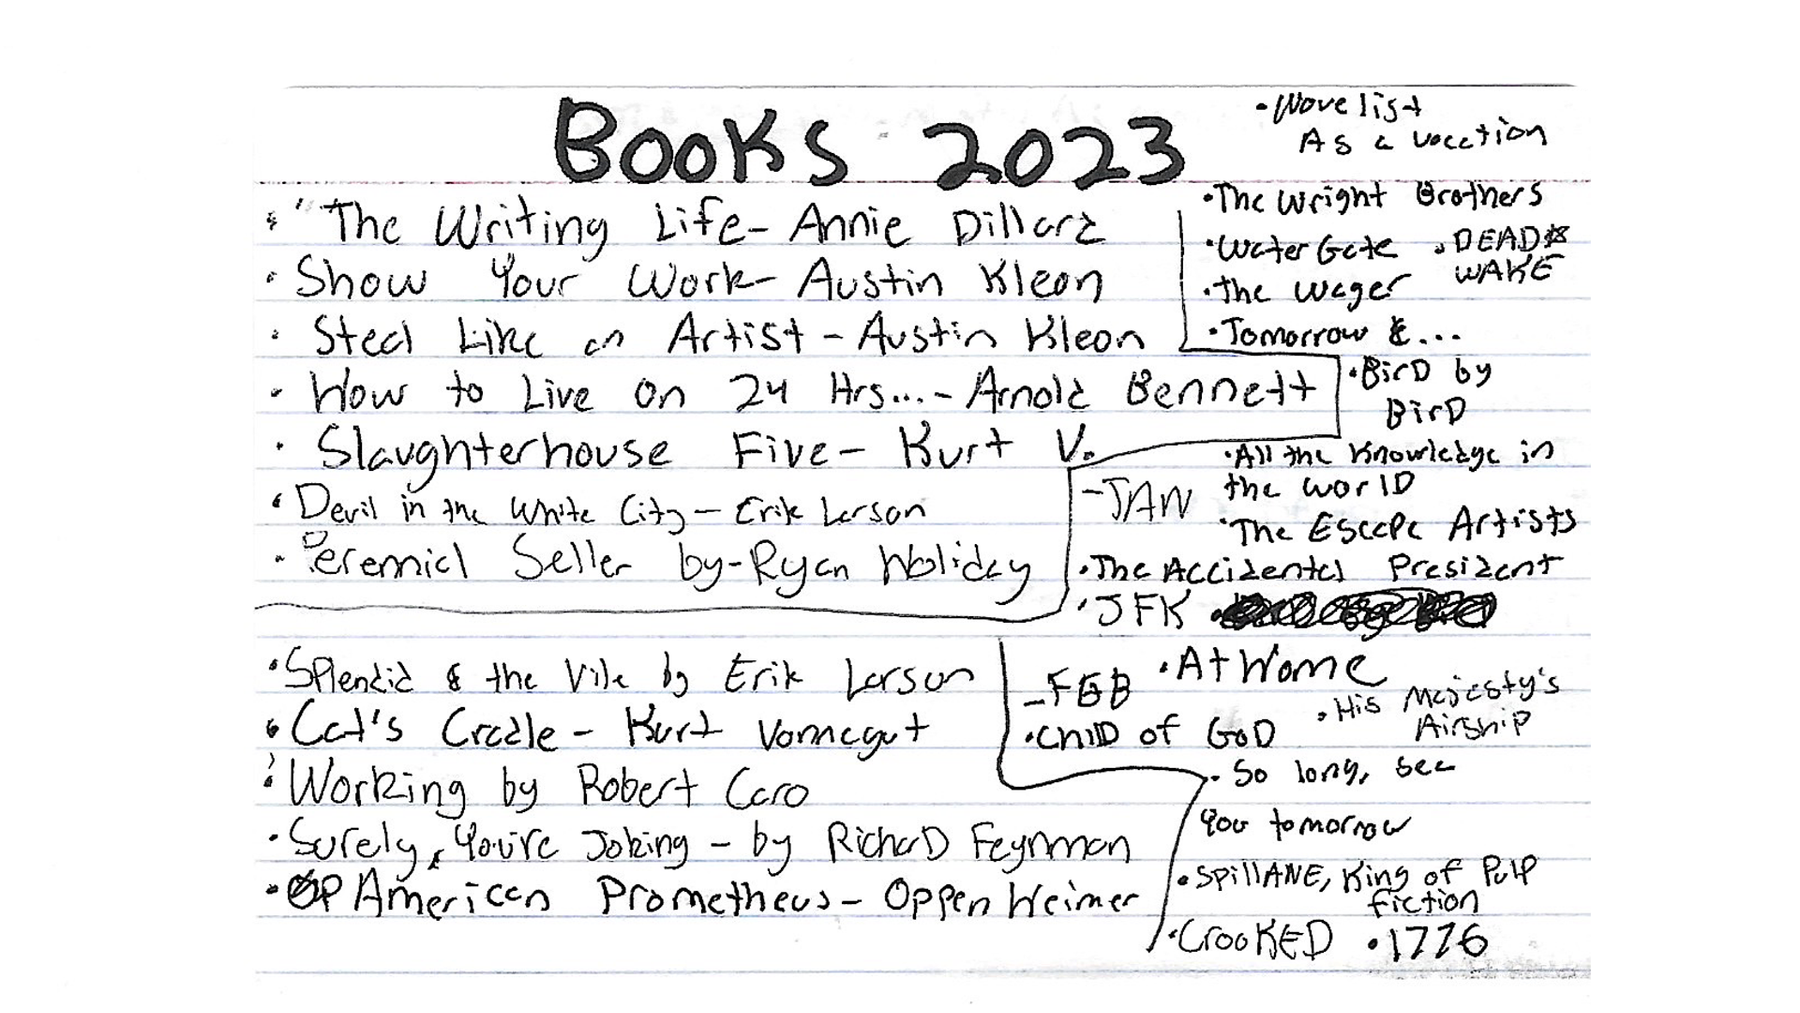 BOOKS 2023
• Novelist
As a vocation
• "The Writing Life- Annie Dillard
• Show Your Work- Austin Kleon
• Steal Like an Artist - Austin Kleon
• How to Live on 24 Hrs...- Arnold Bennett
• Slaughterhouse Five- Kurt V.
• Devil in the White City - Erik Larson
• Perennial Seller by-Ryan Holiday
- JAN
• The Wright Brothers
• WaterGate • DEAD
WAKE
• the Wager
• Tomorrow &...
• BirD by
BirD
• All the Knowledge in
the WorlD
• The Escape Artists
• The Accidental President
• JFK
• At Home
• His Majesty's
Airship
• Splendid & the Vile by Erik Larson
• Cat's Cradle - Kurt Vonnegut
• Working by Robert Caro
• Surely, You're Joking - by RicharD Feynman
• American Prometheus - Oppenheimer
- FEB
• ChilD of GoD
• So long, see
You tomorrow
• SpillANE, King of Pulp
Fiction
• CrooKED • 1776